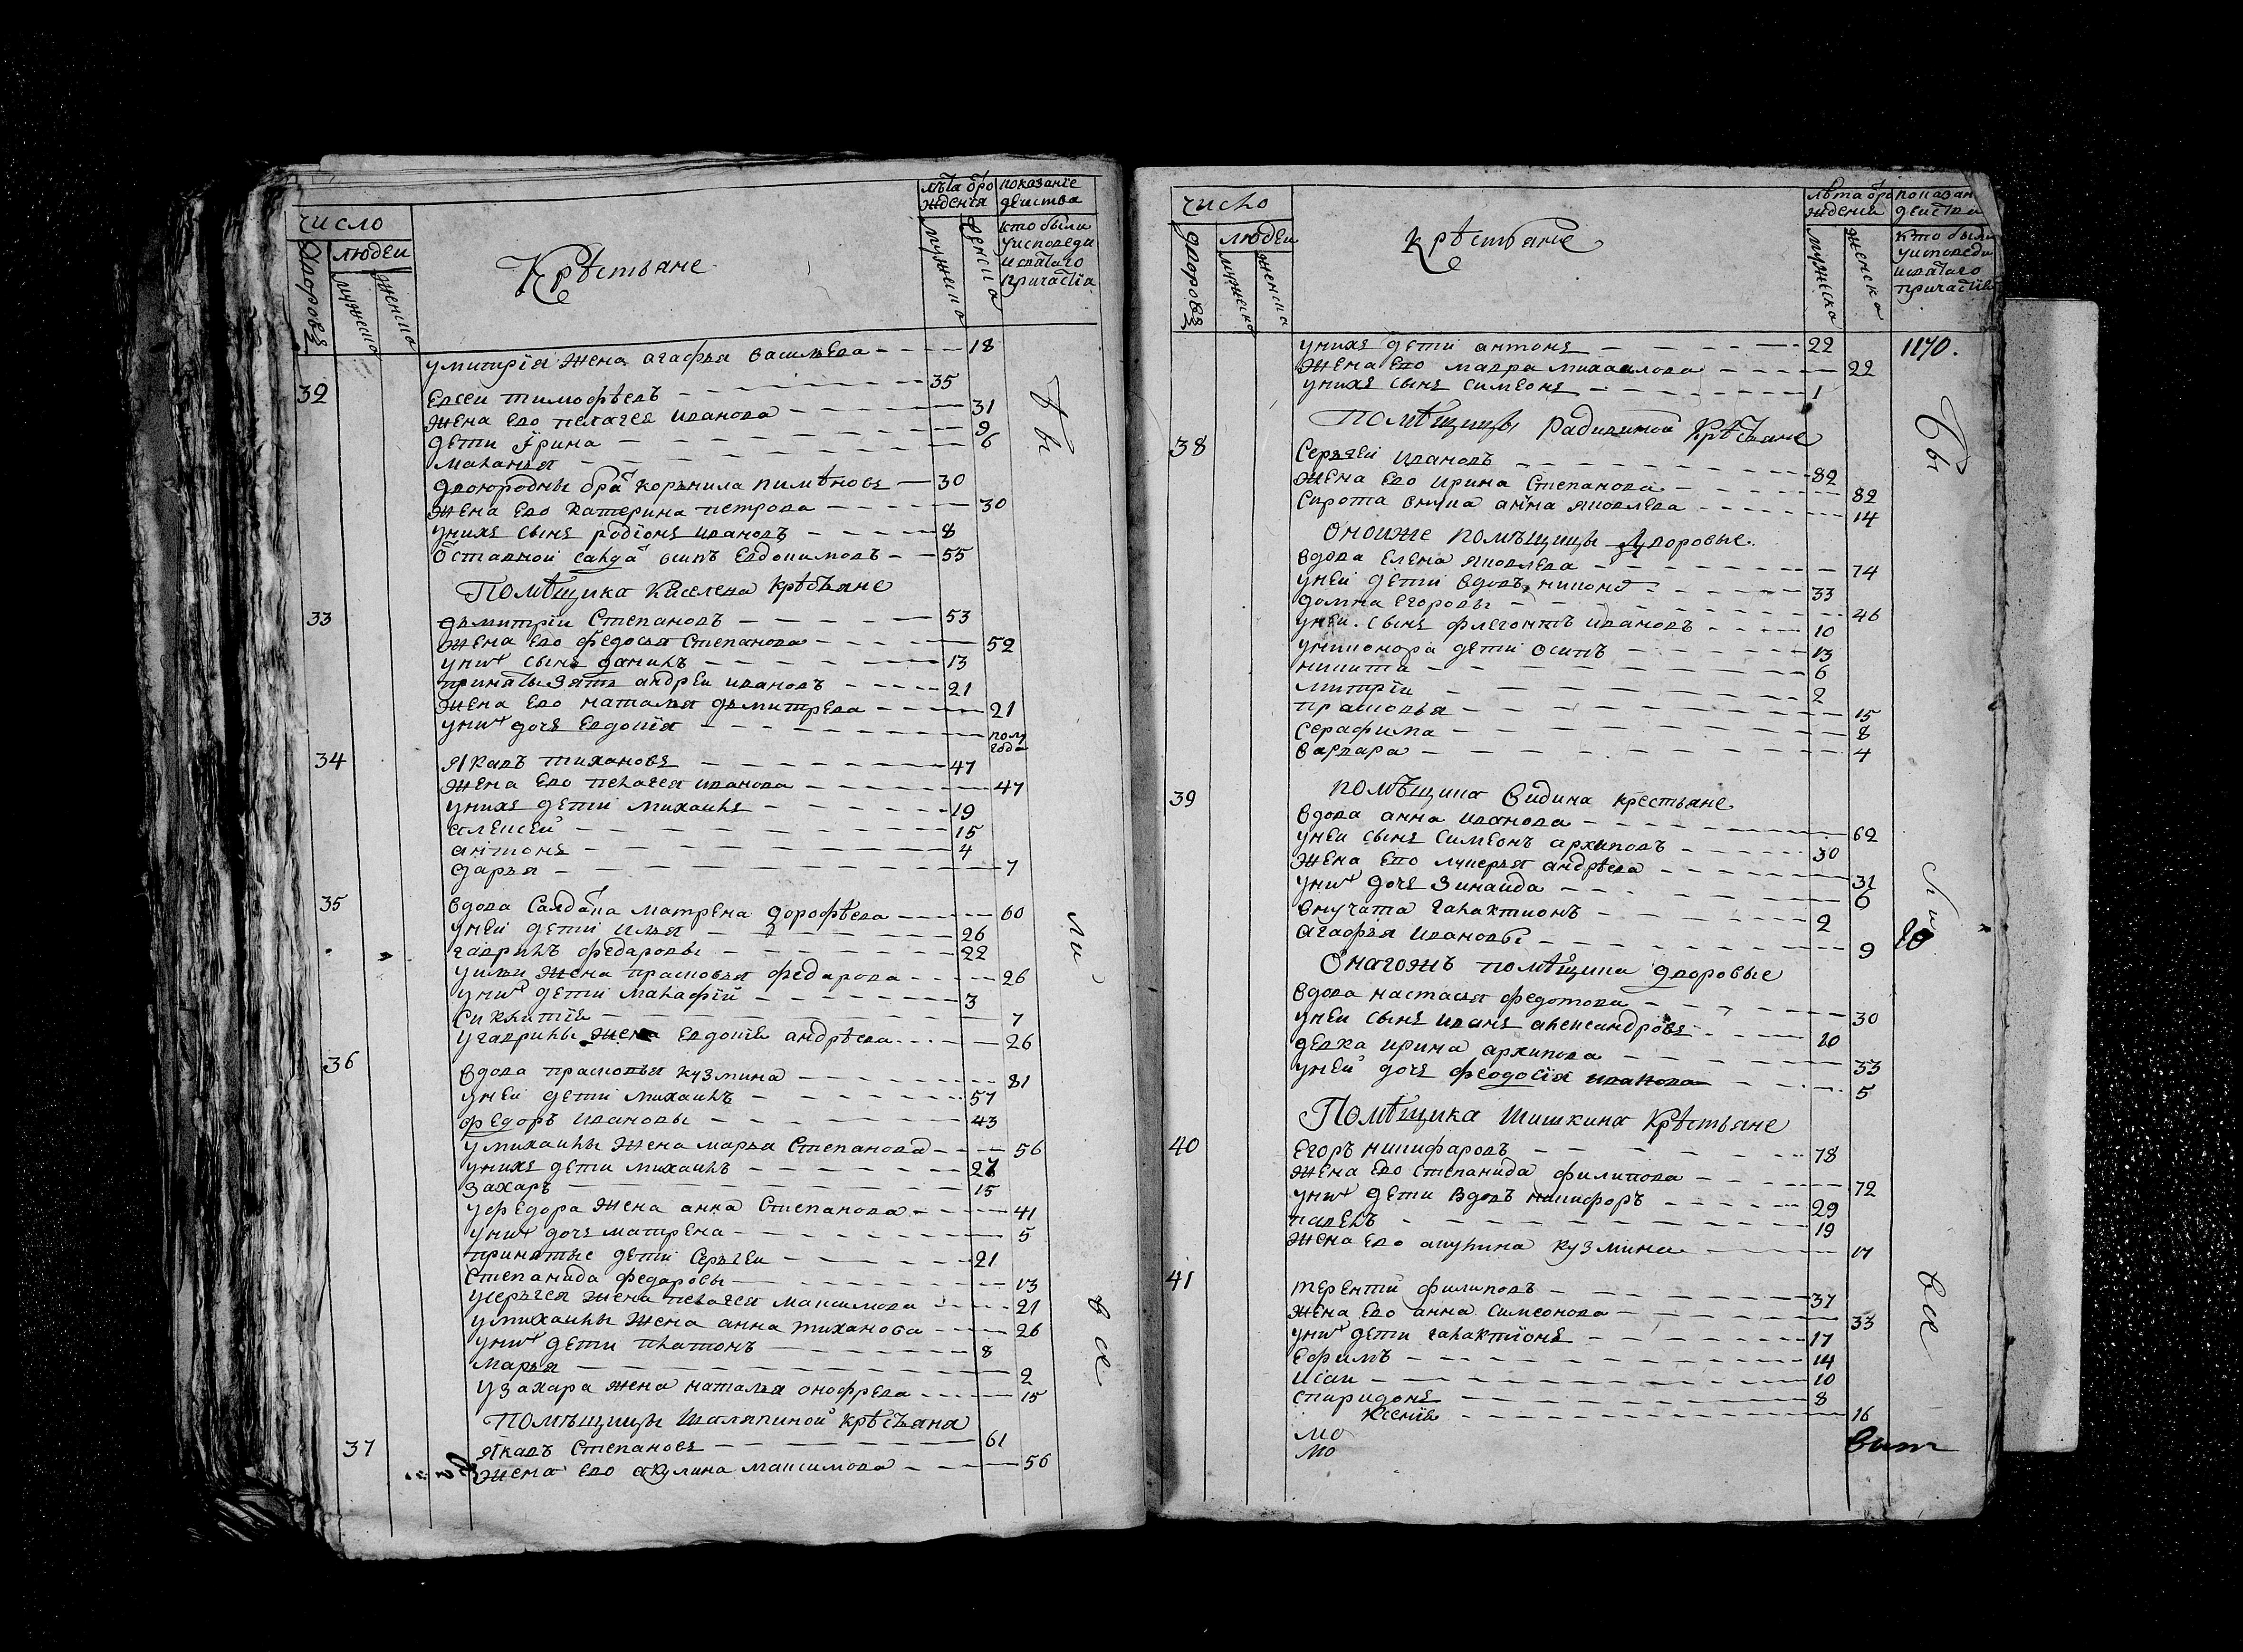 число
дворовъ
людеи
мужеска
женска
Крѣстьяне
лѣта ѿ ро
ждения
мужеска
женска
показание
действа
кто были
у исповеди
и святаго
причастїа
у митрїя жена агафья василева 18
32 Евсеи тимофѣевъ 35
жена ево пелагея иванова 31
дети Їрина 9
маланья 6
двоюродны бра корънила пимѣновъ 30
жена ево катерина петрова 30
у нихъ сынъ родїонъ ивановъ 8
ѿставной салда осипъ Евдокимовъ 55
Помѣщика Киселева крѣсьяне
33 дъмитрїи Степановъ 53
жена ево федосья Степанова 52
у них сынъ данилъ 13
приматы зять андреи ивановъ 21
жена ево наталья дъмитрева 21
у них дочь Евдокїя полу
года
34 Яковъ тихановъ 47
жена ево пелагея иванова 47
у нихъ дети михаилъ 19
алексей 15
антонъ 4
дарья 7
35 вдова Салдака матрена дорофѣева 60
у неи дети илья 26
гаврилъ федаровы 22
у ильи жена прасковья федарова 26
у них дети малафїй 3
7
у гаврилы жена Евдокїя андрѣева 26
36 вдова прасковья кузмина 81
у неи дети михаилъ 57
федоръ ивановы 43
у михаилы жена марья Степанова 56
у нихъ дети михаилъ 27
захаръ 15
у федора жена анна Степанова 41
у них дочь матрена 5
принятые дети Серъгеи 21
Степанида федаровы 13
у серъгея жена пелагея максимова 21
у михаилы жена анна тиханова 26
у них дети платонъ 8
марья 2
у захара жена наталья онофрева 15
Помѣщицы Шаляпиной крѣсъяна
37 Яковъ Степановъ 61
жена ево акулина максимова 56
бы
ли
все
число
дворовъ
людеи
мужеска
женска
крѣстьяне
лѣта ѿ ро
ждения
мужеска
женска
показан
действа
кто были
у исповеди
и святаго
причастїя
у нихъ дети антонъ 22
1170.
жена ево мавра михаилова 22
у нихъ сынъ симеонъ 1
помѣщицы Радилиной Крѣсьяне
38 Серъгеи ивановъ 82
жена ево ирина Степанова 82
Сирота внука анна яковлева 14
Оноиже помѣщицы дворовые.
вдова Елена яковлева 74
у неи дети вдовъ никоно 33
домна Егоровы 46
у неи сынъ флегонтъ ивановъ 10
у никонора дети осипъ 13
никита 6
митрїи 2
прасковья 15
серафима 8
варвара 4
39 помѣщика видина крестьяне
вдова анна иванова 62
у неи сынъ симеонъ архиповъ 30
жена ево лукерья андрѣева 31
у них дочь зинаида 6
внучата галактионъ 2
агафья ивановы 9
Онагожъ помѣщика дворовые
вдова настасья федотова 30
у неи сынъ иванъ александровъ 10
девка ирина архипова 33
у неи дочь феодосїя иванова 5
Помѣщика Шишкина Крѣстьяне
40 Егоръ никифаровъ 78
жена ево степанида филипова 72
у них дети вдовъ никифоръ 29
павелъ 19
жена ево акулина кузмина 17
41 терентїй филиповъ 37
жена ево анна симеонова 33
у них дети галактїонъ 17
Ефимъ 14
исаи 10
спиридонъ 8
Ксенїя 16
мо
мо
бы
ли
все